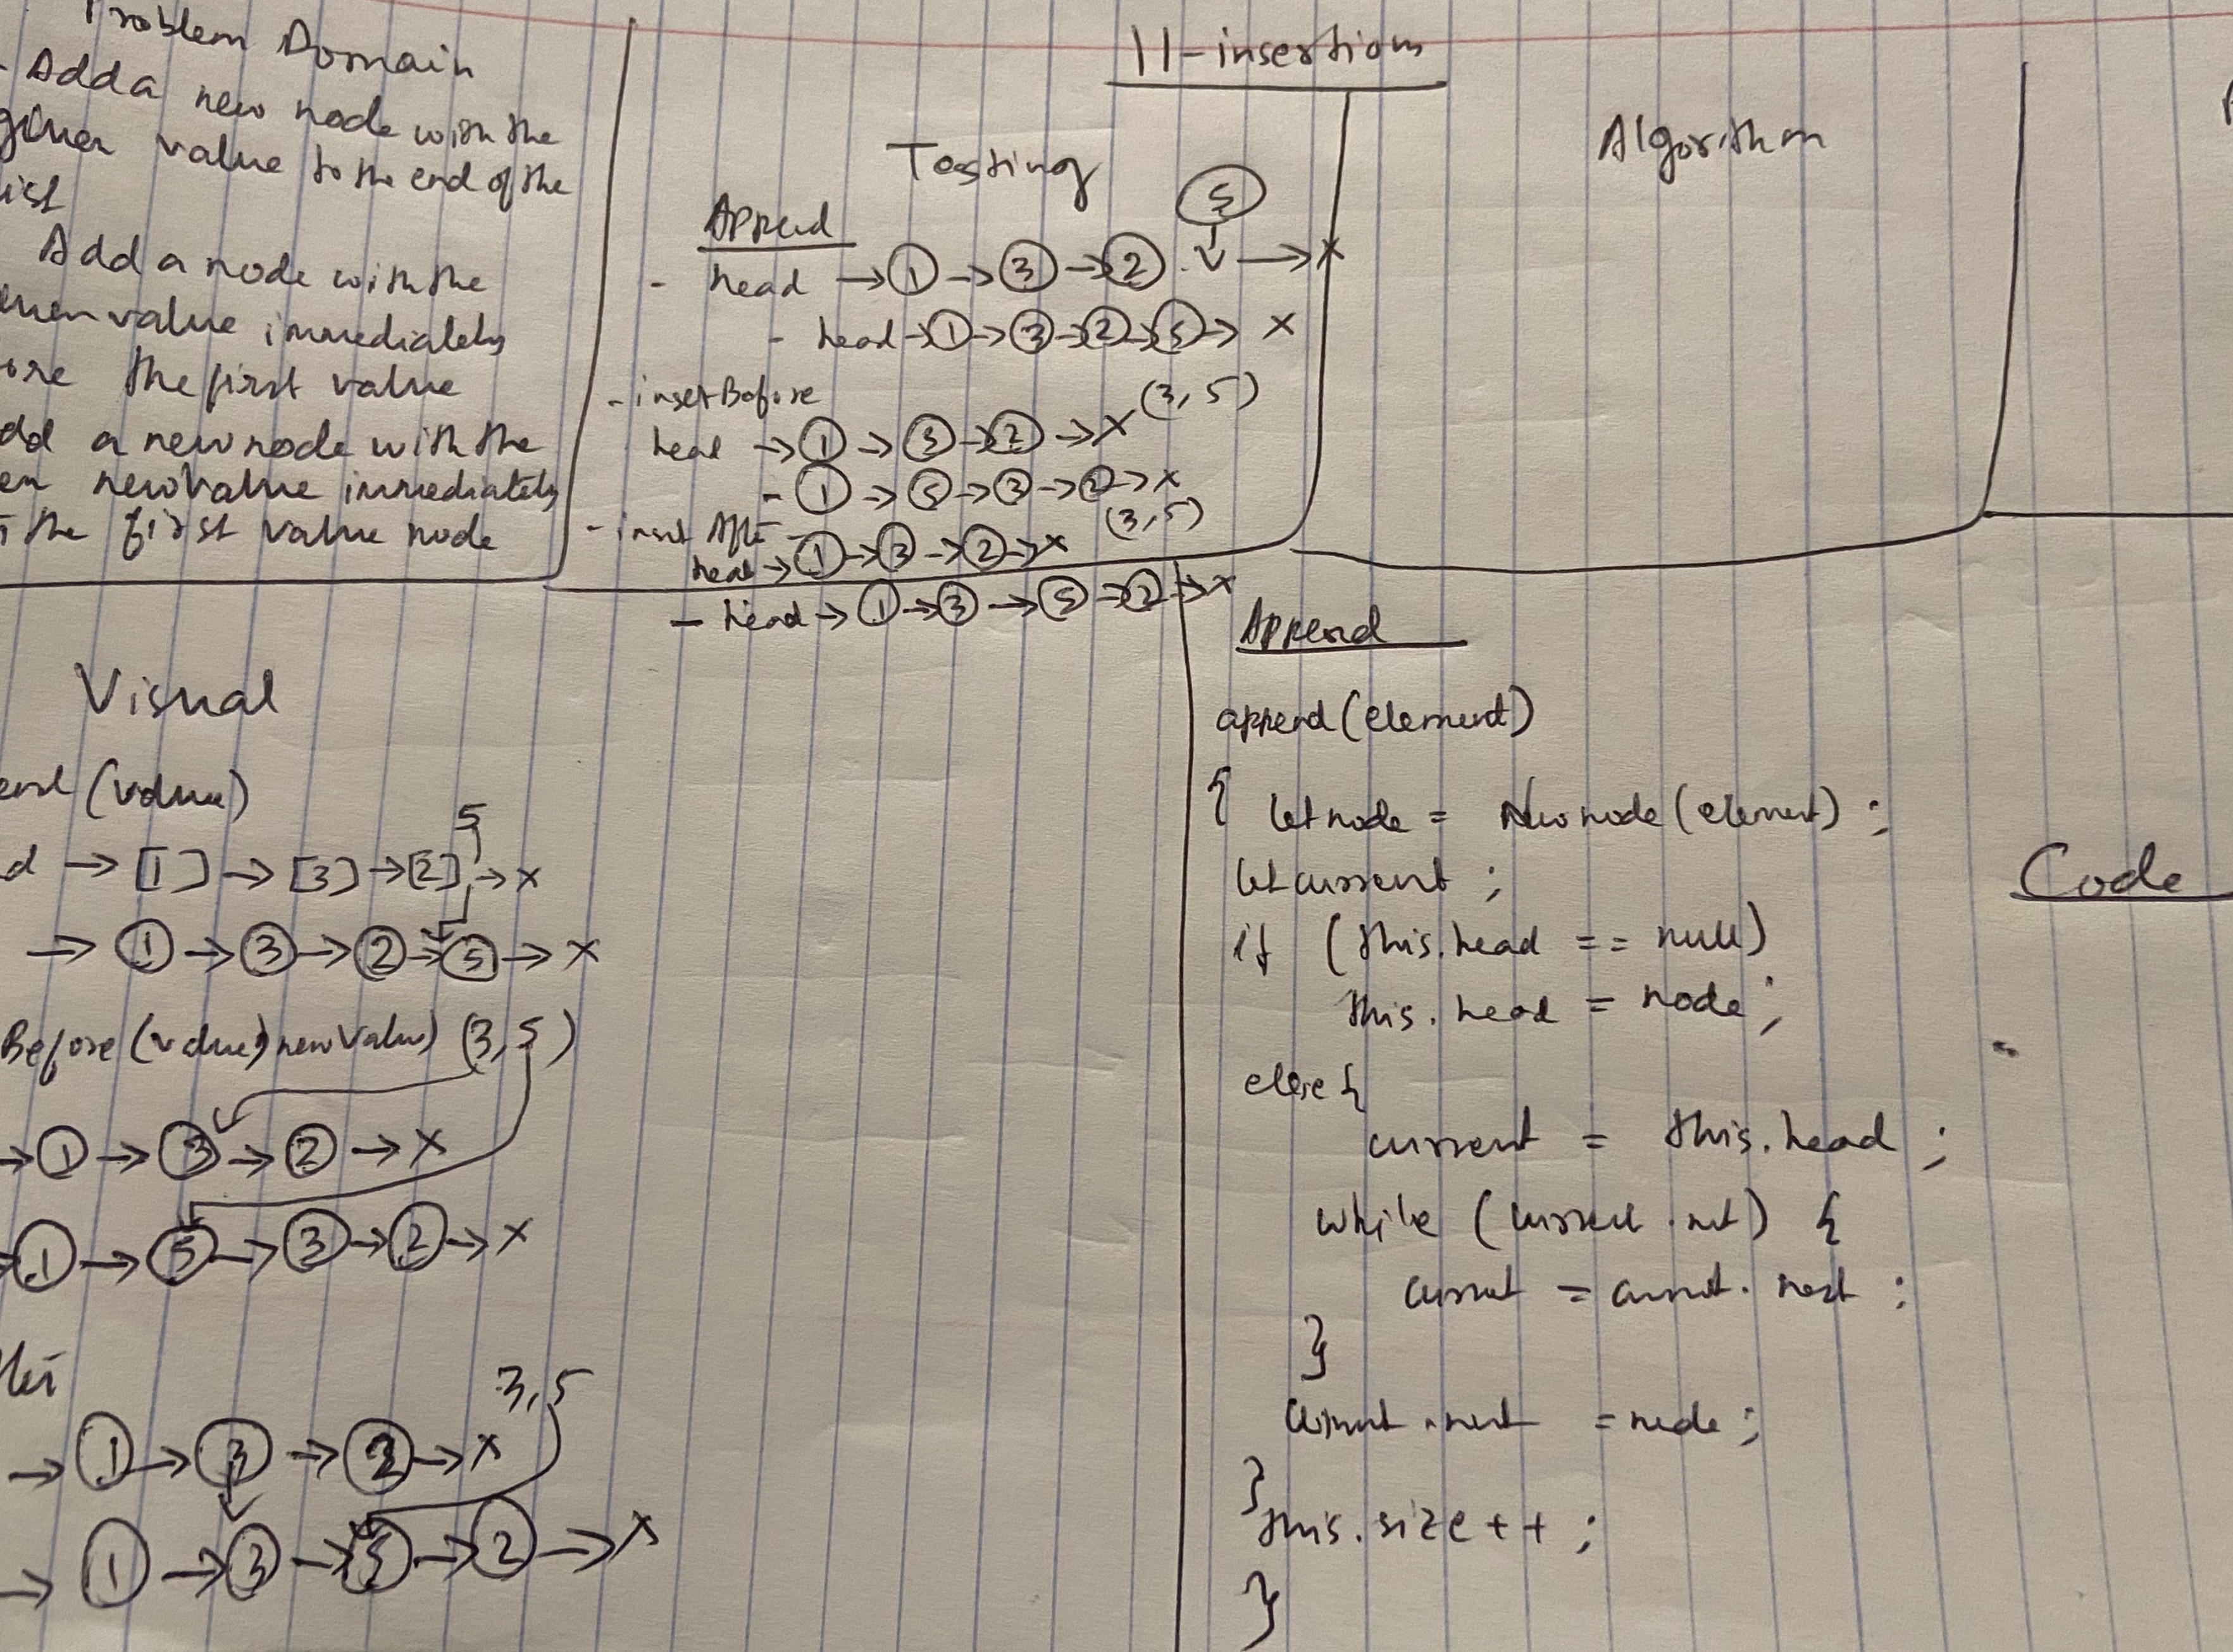 ll-insertions
Problem Domain
- Add a new node with the
given value to the end of the
list
Add a node with the
value immediately
the first value
a new node with the
newValue immediately
the first value node
Testing
5
Append
- head → 1 → 3 → 2 → X
- head → 1 → 3 → 2 → 5 → X
- insertBefore (3, 5)
head → 1 → 3 → 2 → X
- 1 → 5 → 3 → 2 → X
- insert After (3, 5)
head → 1 → 3 → 2 → X
- head → 1 → 3 → 5 → 2 → X
Algorithm
Visual
(value)
5
→ [1] → [3] → [2] → X
→ 1 → 3 → 2 → 5 → X
Before (value, newValue) (3, 5)
→ 1 → 3 → 2 → X
→ 1 → 5 → 3 → 2 → X
3, 5
→ 1 → 3 → 2 → X
→ 1 → 3 → 5 → 2 → X
Append
append (element)
{ let node = New node (element) ;
let current ;
if (this.head == null)
this.head = node ;
else {
current = this.head ;
while (current.next) {
current = current.next ;
}
current.next = node ;
}
this.size++ ;
}
Code